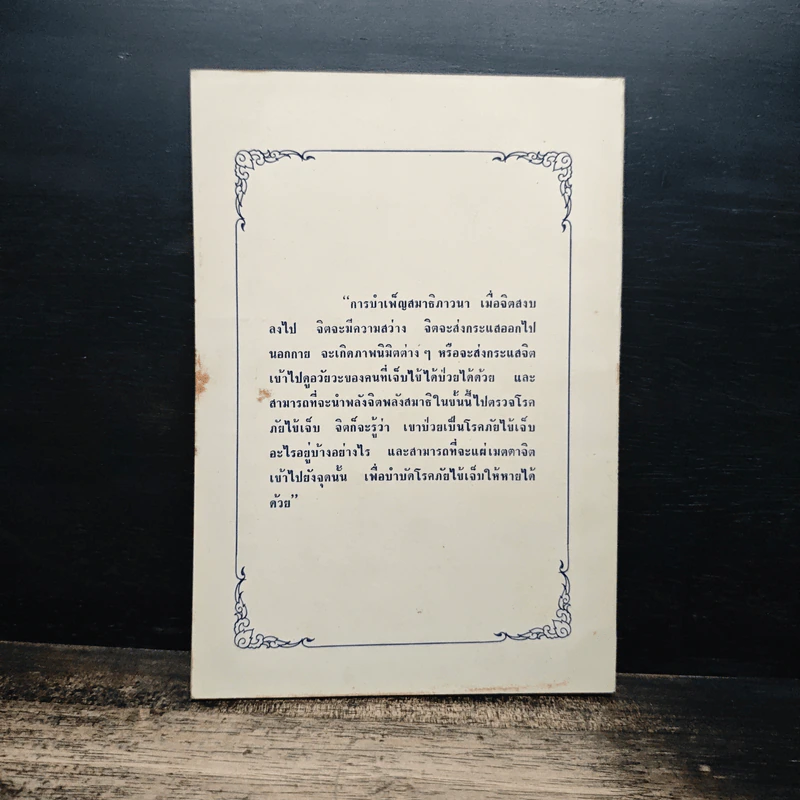 “การบำเพ็ญสมาธิภาวนา เมื่อจิตสงบ
ลงไป จิตจะมีความสว่าง จิตจะส่งกระแสออกไป
นอกกาย จะเกิดภาพนิมิตต่าง ๆ หรือจะส่งกระแสจิต
เข้าไปดูอวัยวะของคนที่เจ็บไข้ได้ป่วยได้ด้วย และ
สามารถที่จะนำพลังจิตพลังสมาธิในขั้นนี้ไปตรวจโรค
ภัยไข้เจ็บ จิตก็จะรู้ว่า เขาป่วยเป็นโรคภัยไข้เจ็บ
อะไรอยู่บ้างอย่างไร และสามารถที่จะแผ่เมตตาจิต
เข้าไปยังจุดนั้น เพื่อบำบัดโรคภัยไข้เจ็บให้หายได้
ด้วย”